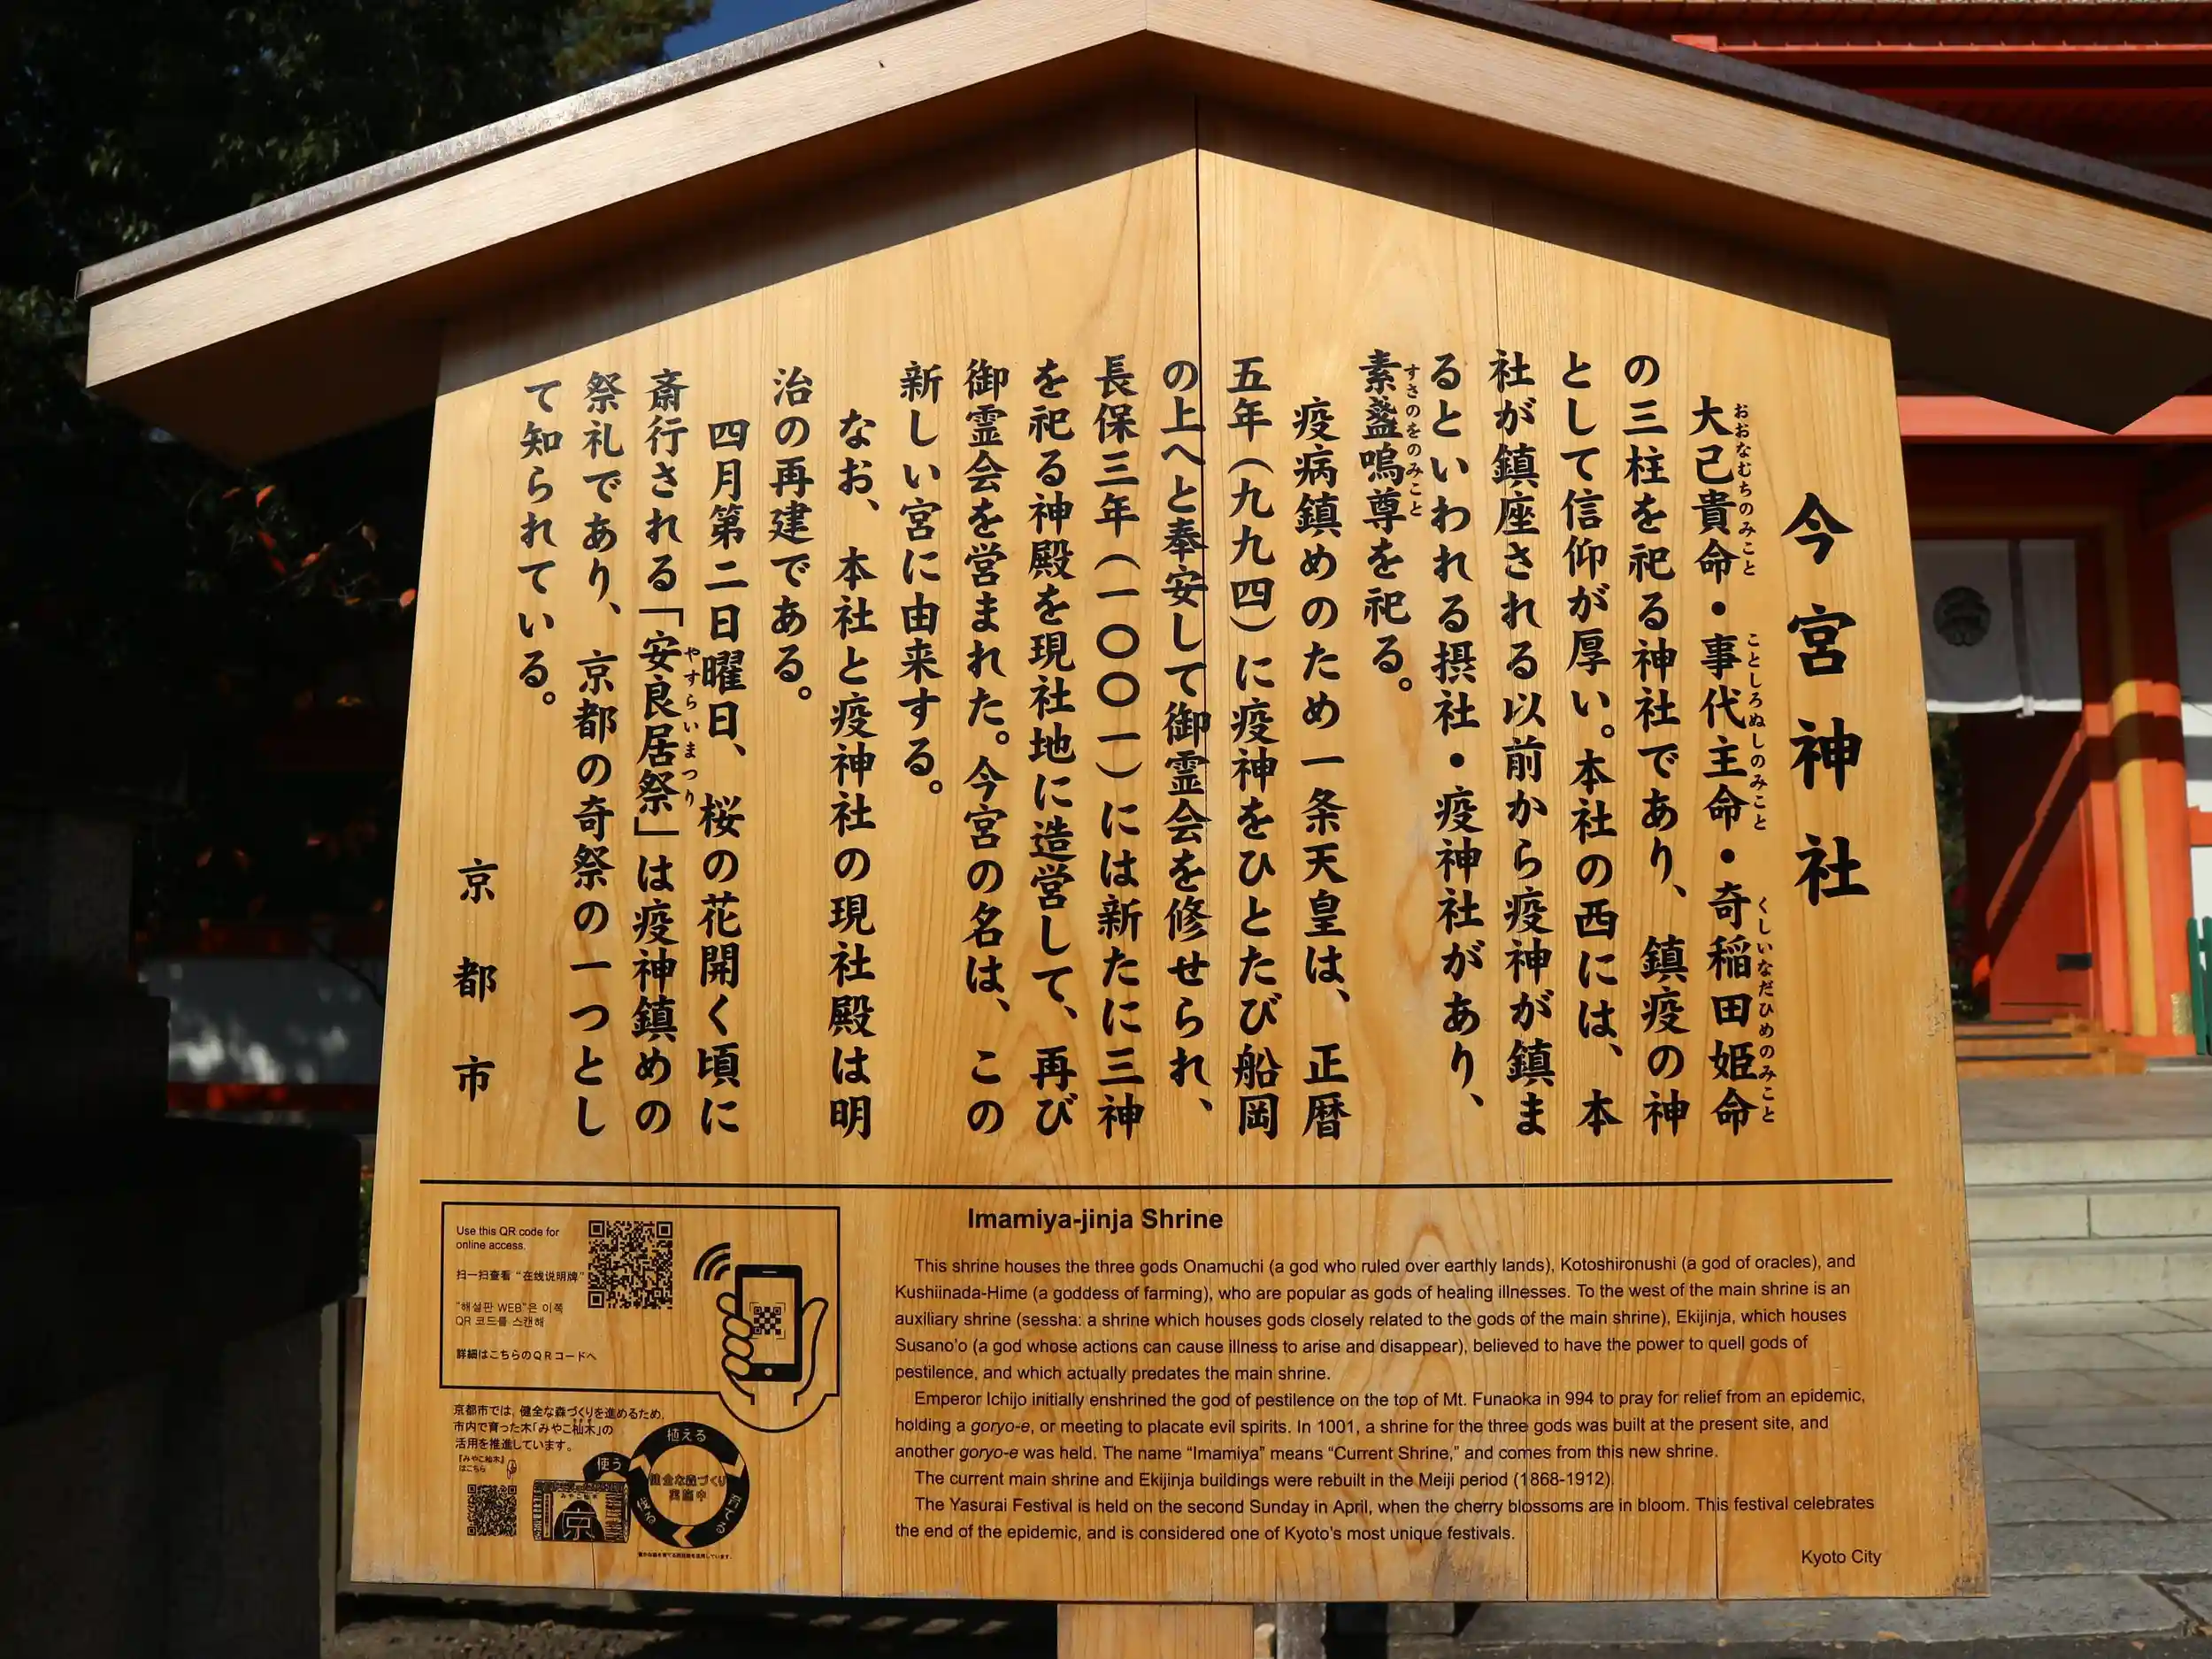 今宮神社
大己貴命・事代主命・奇稲田姫命
おおなむちのみこと ことしろぬしのみこと くしいなだひめのみこと
の三柱を祀る神社であり、鎮疫の神
として信仰が厚い。本社の西には、本
社が鎮座される以前から疫神が鎮ま
るといわれる摂社・疫神社があり、
素盞嗚尊を祀る。
すさのをのみこと
疫病鎮めのため一条天皇は、正暦
五年(九九四)に疫神をひとたび船岡
の上へと奉安して御霊会を修せられ、
長保三年(一〇〇一)には新たに三神
を祀る神殿を現社地に造営して、再び
御霊会を営まれた。今宮の名は、この
新しい宮に由来する。
なお、本社と疫神社の現社殿は明
治の再建である。
四月第二日曜日、桜の花開く頃に
斎行される「安良居祭」は疫神鎮めの
やすらいまつり
祭礼であり、京都の奇祭の一つとし
て知られている。
京都市
Use this QR code for
online access.
扫一扫查看“在线说明牌”
"해설판 WEB"은 이쪽
QR 코드를 스캔해
詳細はこちらのQRコードへ
京都市では、健全な森づくりを進めるため、
市内で育った木「みやこ杣木」の
活用を推進しています。
『みやこ杣木』
はこちら
植える
使う
健全な森づくり
実施中
みやこ杣木
京
Imamiya-jinja Shrine
This shrine houses the three gods Onamuchi (a god who ruled over earthly lands), Kotoshironushi (a god of oracles), and
Kushiinada-Hime (a goddess of farming), who are popular as gods of healing illnesses. To the west of the main shrine is an
auxiliary shrine (sessha: a shrine which houses gods closely related to the gods of the main shrine), Ekijinja, which houses
Susano'o (a god whose actions can cause illness to arise and disappear), believed to have the power to quell gods of
pestilence, and which actually predates the main shrine.
Emperor Ichijo initially enshrined the god of pestilence on the top of Mt. Funaoka in 994 to pray for relief from an epidemic,
holding a goryo-e, or meeting to placate evil spirits. In 1001, a shrine for the three gods was built at the present site, and
another goryo-e was held. The name “Imamiya” means “Current Shrine,” and comes from this new shrine.
The current main shrine and Ekijinja buildings were rebuilt in the Meiji period (1868-1912).
The Yasurai Festival is held on the second Sunday in April, when the cherry blossoms are in bloom. This festival celebrates
the end of the epidemic, and is considered one of Kyoto's most unique festivals.
Kyoto City